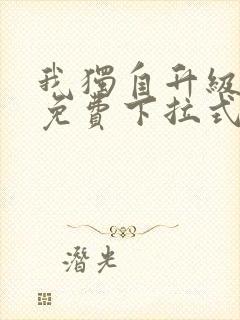 我獨自升級
免費下拉式
潛光